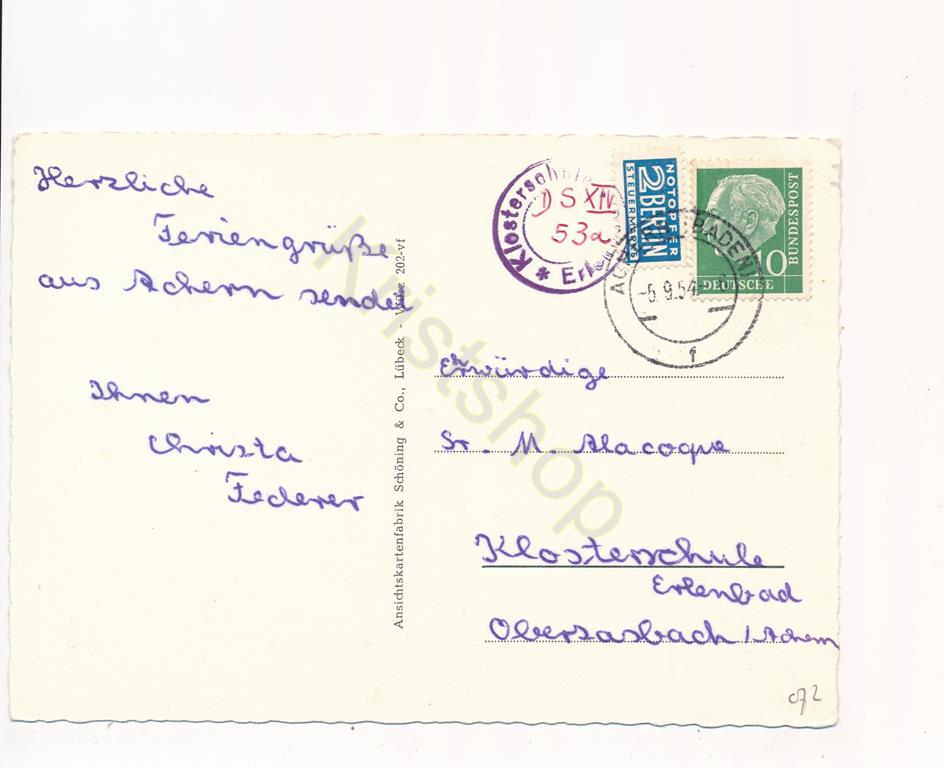 Herzliche
Feriengrüße
aus Achern sendet
Ihnen
Christa
Federer
Ansichtskartenfabrik Schöning & Co., Lübeck - 202-vf
Klosterschule
DS XIV
53a
* Erlenbad
NOTOPFER
2 BERLIN
STEUERMARKE
DEUTSCHE
BUNDESPOST
10
(BADEN)
-5.9.54
f
Ehrwürdige
Sr. M. Alacoque
Klosterschule
Erlenbad
Obersasbach / Achern
Kristshop